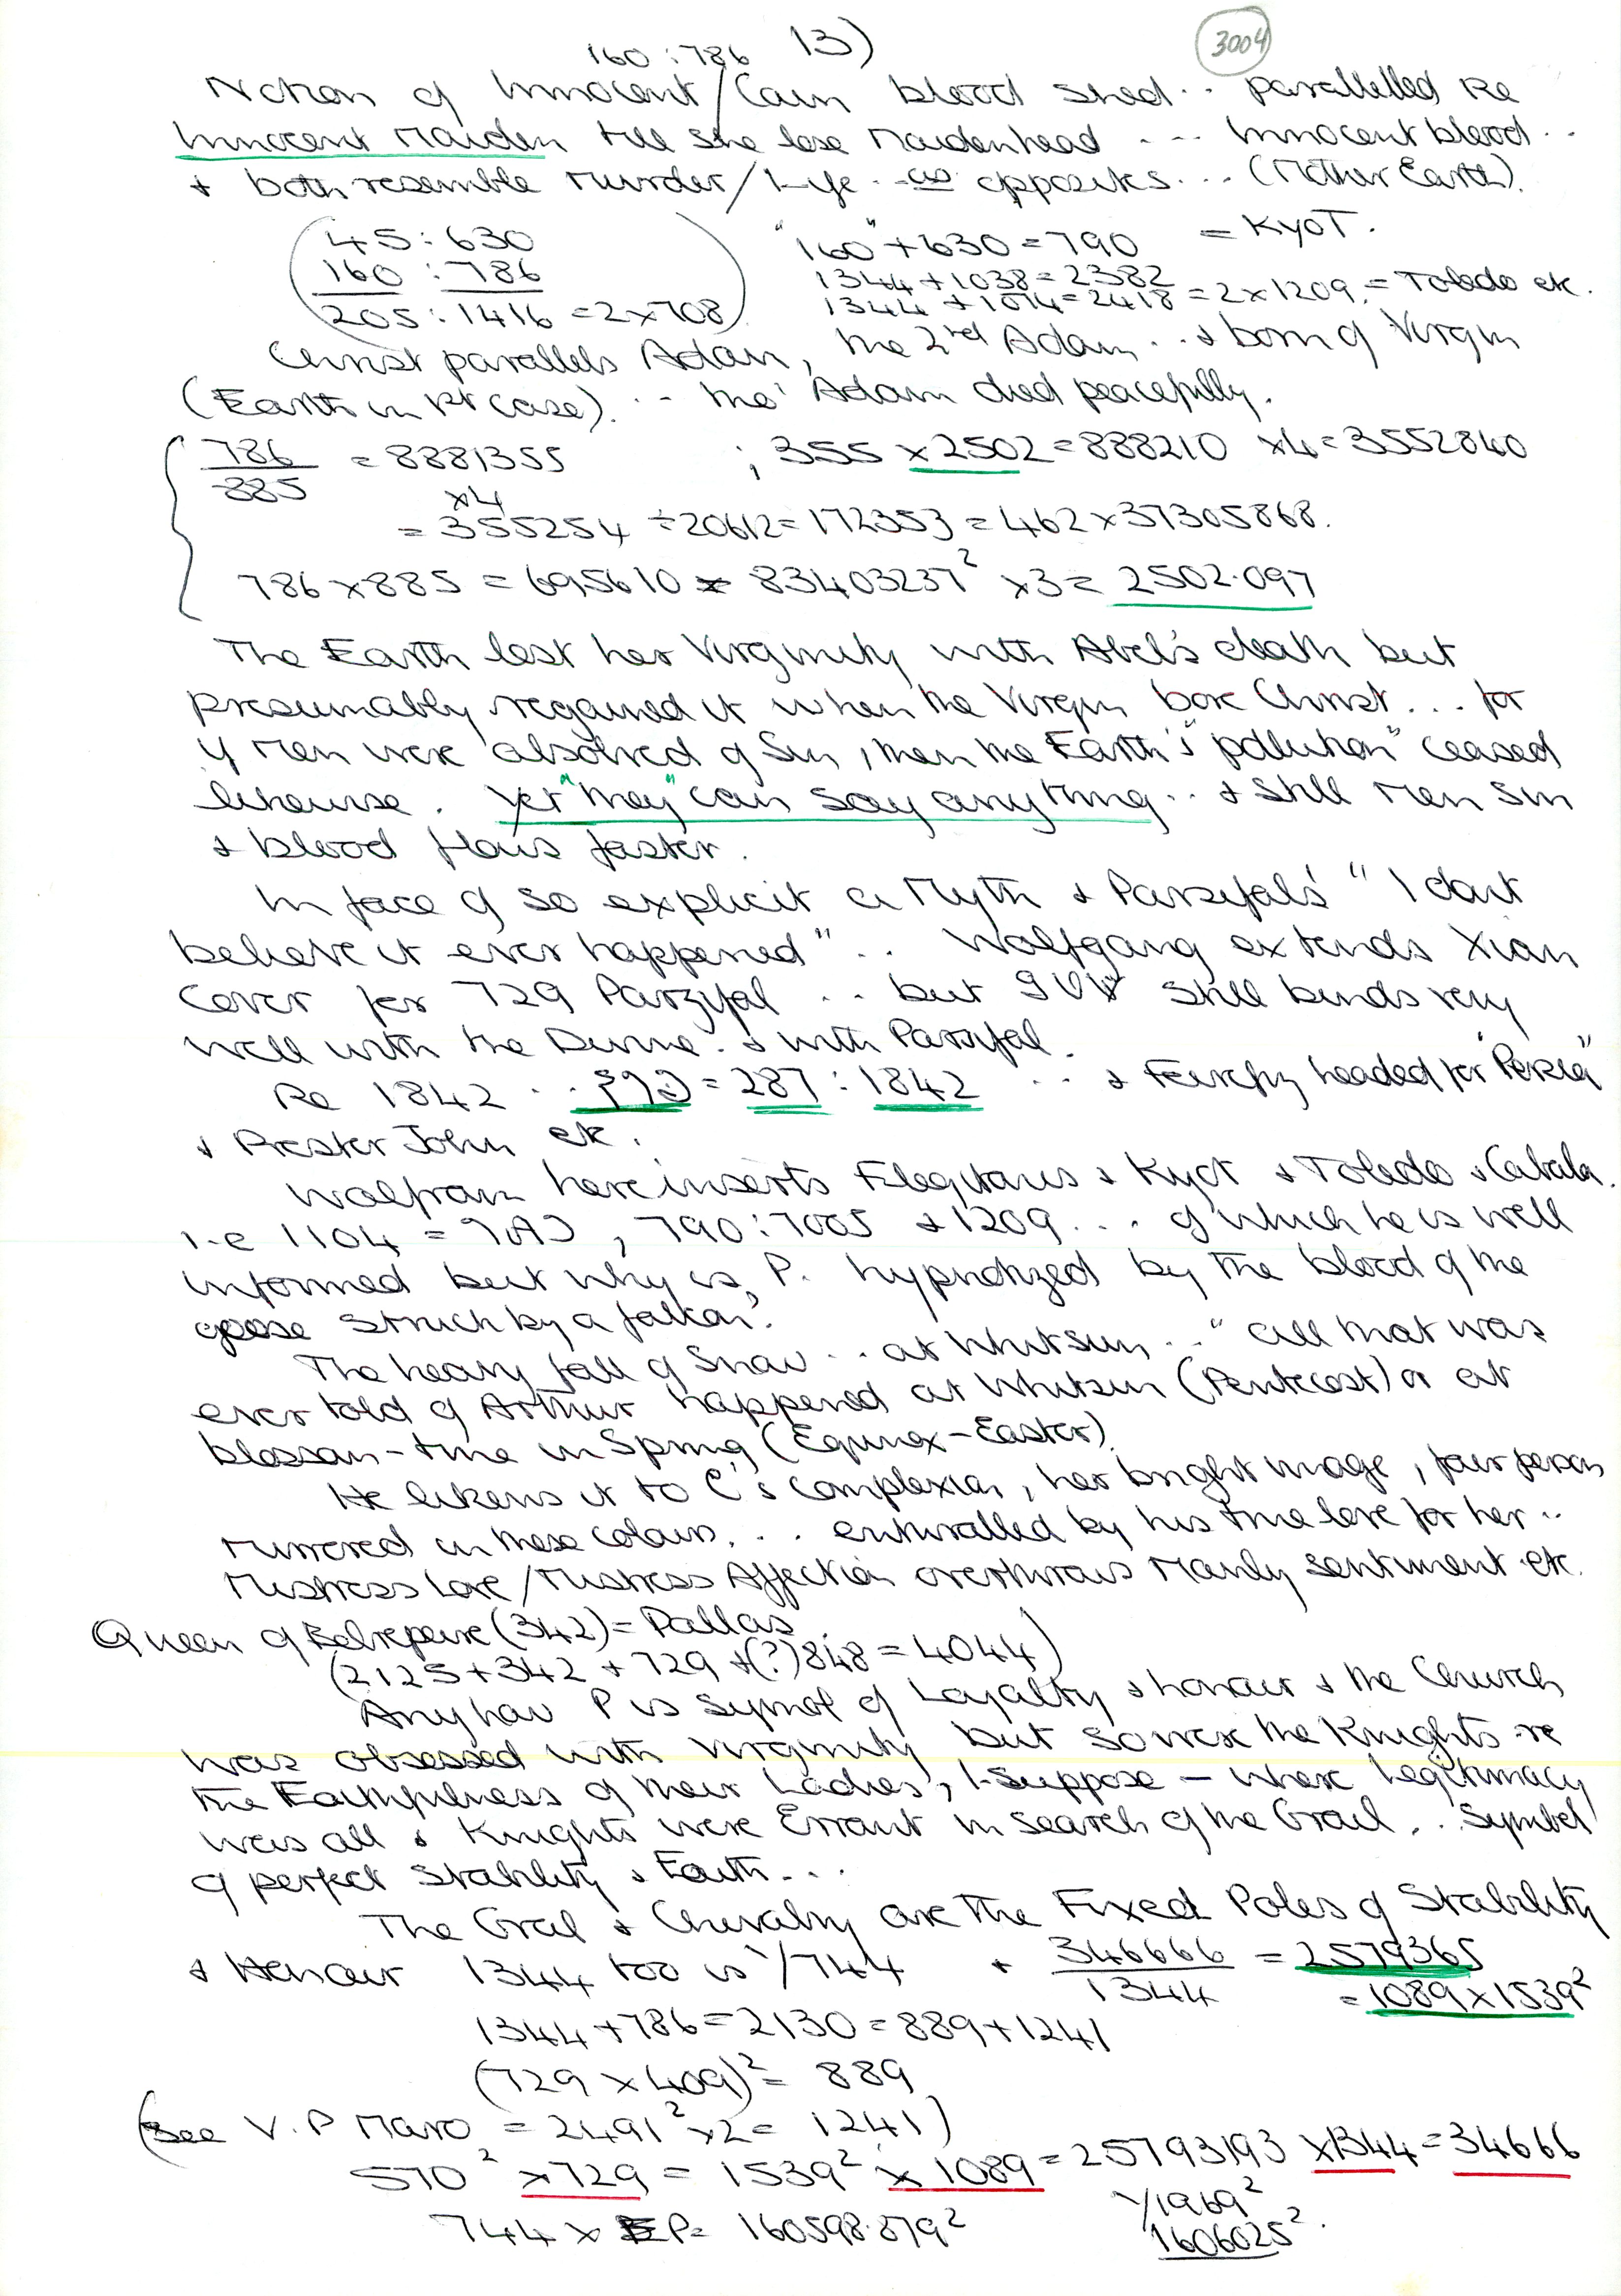 13)
3004
160 : 786
Notion of Innocent / Cain blood shed .. parallelled Re
Innocent Maiden till she lose Maidenhead .... Innocent blood ..
+ both resemble Murder / Life .. as opposites ... (Mother Earth).
45 : 630
160 : 786
205 : 1416 = 2 x 708
"160" + 630 = 790 = KYOT.
1344 + 1038 = 2382
1344 + 1074 = 2418 = 2 x 1209. = Toledo etc.
Christ parallels Adam, the 2nd Adam .. + born of Virgin
(Earth in 1st case) ... the Adam died peacefully.
786 / 885 = 8881355 ; 355 x 2502 = 888210 x4 = 3552840
x4
= 355254 ÷ 20612 = 172353 = 462 x 37305868.
786 x 885 = 695610 = 83403237² x3 = 2502.097
The Earth lost her Virginity with Abel's death but
presumably regained it when the Virgin bore Christ ... for
if Men were absolved of Sin, then the Earth's "pollution" ceased
likewise. Yet "they" can say anything .. + still Men sin
+ blood flows faster.
In face of so explicit a Myth + Parzifal's "I don't
believe it ever happened" .. Wolfgang extends Xian
Cover for 729 Parzifal ... but still binds very
well with the Divine. + with Parzifal.
Re 1842 ... = 287 : 1842 ... + Feirefiz headed for "Persia"
+ Prester John etc.
Wolfram here inserts Flegitanis + Kyot + Toledo + Cabala.
i.e 1104 = , 790 : 7005 + 1209 ... of which he is well
informed but why is P. hypnotized by the blood of the
goose struck by a falcon?
The heavy fall of Snow .. at Whitsun .. "all that was
ever told of Arthur happened at Whitsun (Pentecost) or at
blossom-time in Spring (Equinox-Easter).
He likens it to C's complexion, her bright image, fair person
Mirrored in these colours ... enthralled by his true love for her ..
Mistress Love / Mistress Affection overthrows Manly sentiment etc.
Queen of Belrepeire (342) = Pallas
(2125 + 342 + 729 + (?) 848 = 4044)
Anyhow P is symbol of Loyalty + honour + the Church
was obsessed with Virginity but so were the Knights re
the Faithfulness of their Ladies, I suppose — where Legitimacy
was all + Knights were Errant in search of the Grail ... Symbol
of perfect Stability + Faith ...
The Gral + Chivalry are the Fixed Poles of Stability
+ Honour 1344 too is 1/744 + 346666 / 1344 = 2579365
= 1089 x 1539²
1344 + 786 = 2130 = 889 + 1241
(729 x 409)² = 889
(See V. P Maro = 2491² x 2 = 1241)
570² x 729 = 1539² x 1089 = 25793193 x 1344 = 34666
1/1969²
744 x P = 160598.879² 1606025².